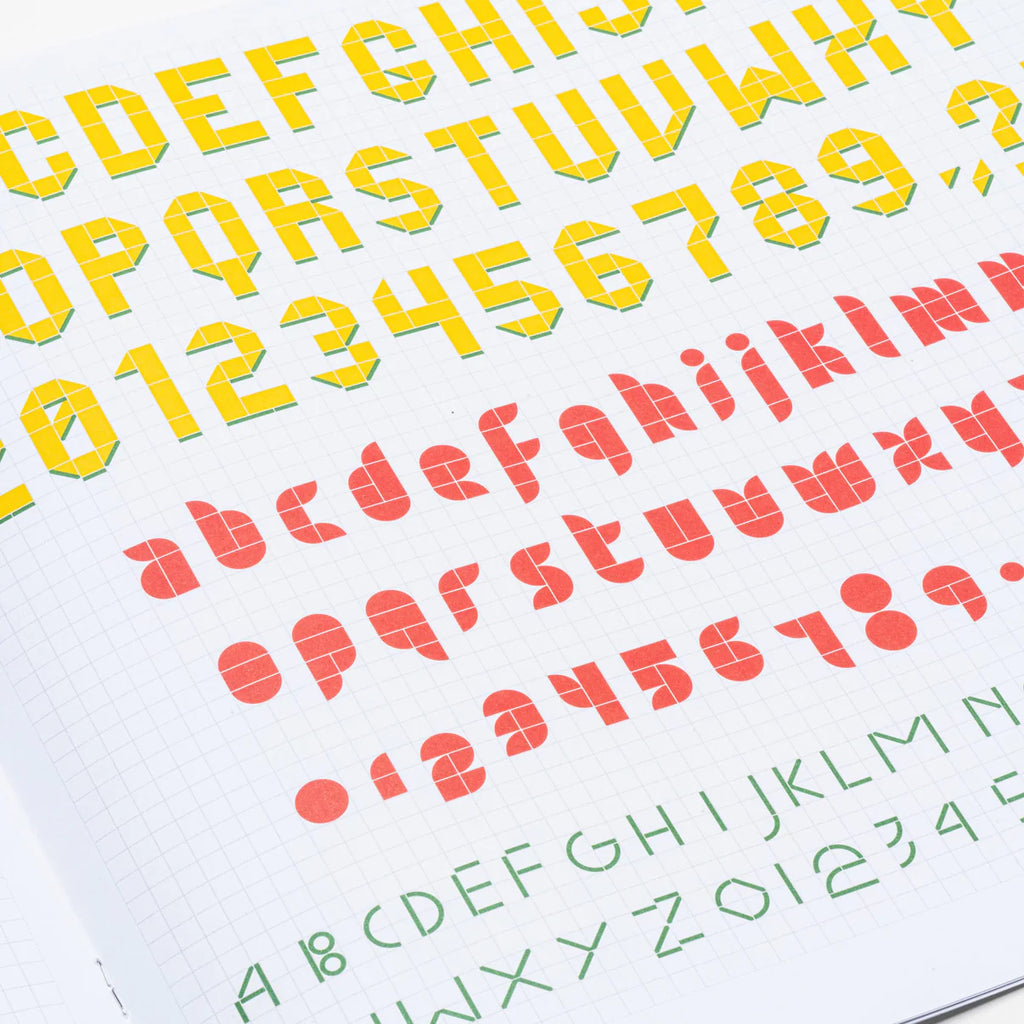 CDEFGHIJ
OPQRSTUVWXY
0123456789,?
abcdefghijklmn
opqrstuvwxy
0123456789.
ABCDEFGHIJKLMN
WXYZ012345